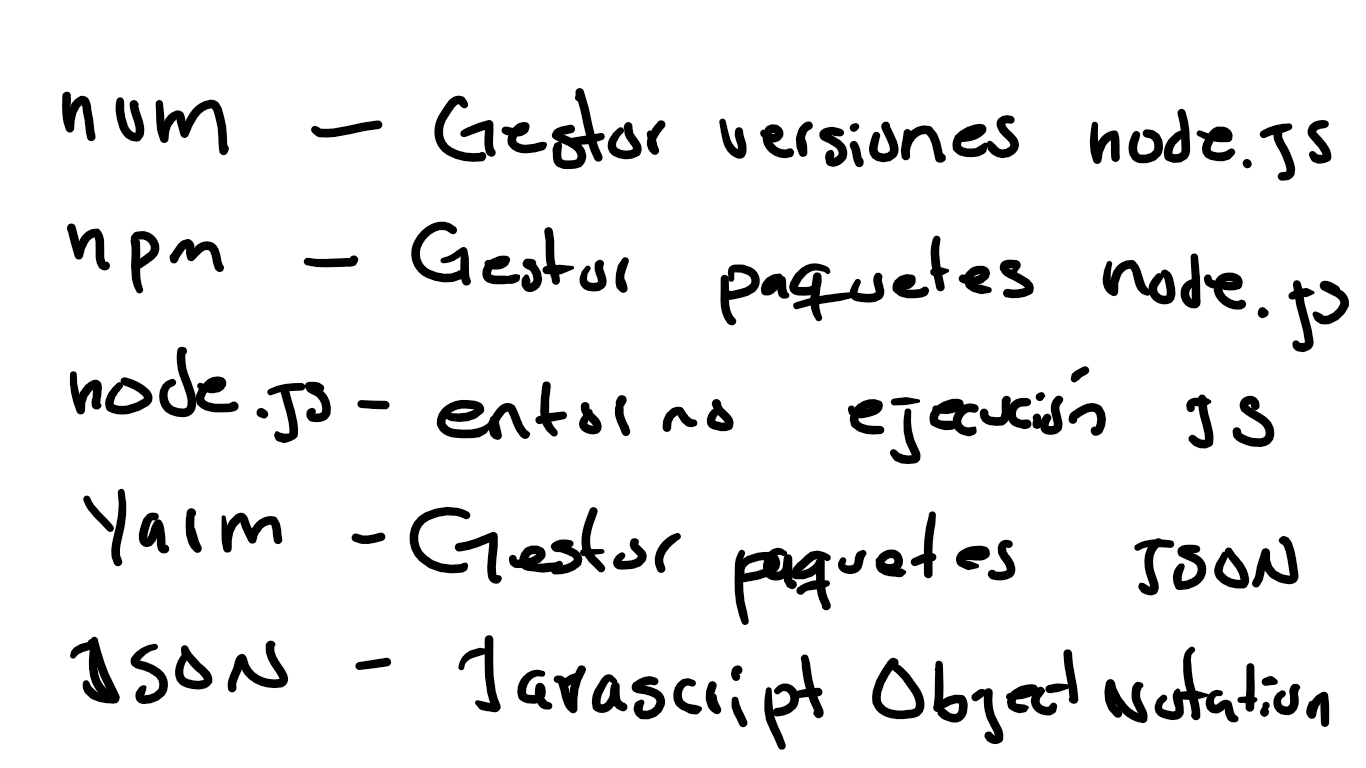 nvm - Gestor versiones node.JS
npm - Gestor paquetes node.js
node.js - entorno ejecución JS
Yarm - Gestor paquetes JSON
JSON - Javascript Object Notation